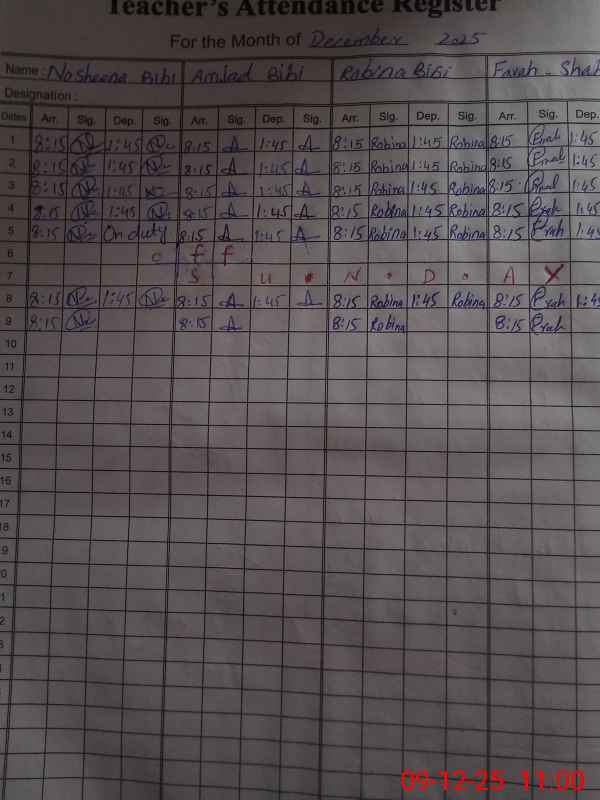 Teacher's Attendance Register
For the Month of December 2025
Name : Nosheena Bibi Amjad Bibi Robina Bibi Farah . Shah
Designation :
Dates Arr. Sig. Dep. Sig. Arr. Sig. Dep. Sig. Arr. Sig. Dep. Sig. Arr. Sig. Dep.
1 8:15 1:45 8:15 A 1:45 A 8:15 Robina 1:45 Robina 8:15 1:45
2 8:15 1:45 8:15 A 1:45 A 8:15 Robina 1:45 Robina 8:15 1:45
3 8:15 1:45 8:15 A 1:45 A 8:15 Robina 1:45 Robina 8:15 1:45
4 8:15 1:45 8:15 A 1:45 A 8:15 Robina 1:45 Robina 8:15 1:45
5 8:15 On duty 8:15 A 1:45 A 8:15 Robina 1:45 Robina 8:15 1:45
6 o f f
7 S u . N . D . A Y
8 8:15 1:45 8:15 A 1:45 A 8:15 Robina 1:45 Robina 8:15 1:45
9 8:15 8:15 A 8:15 Robina 8:15
10
11
12
13
14
15
16
17
18
9
0
1
2
3
09-12-25 11:00